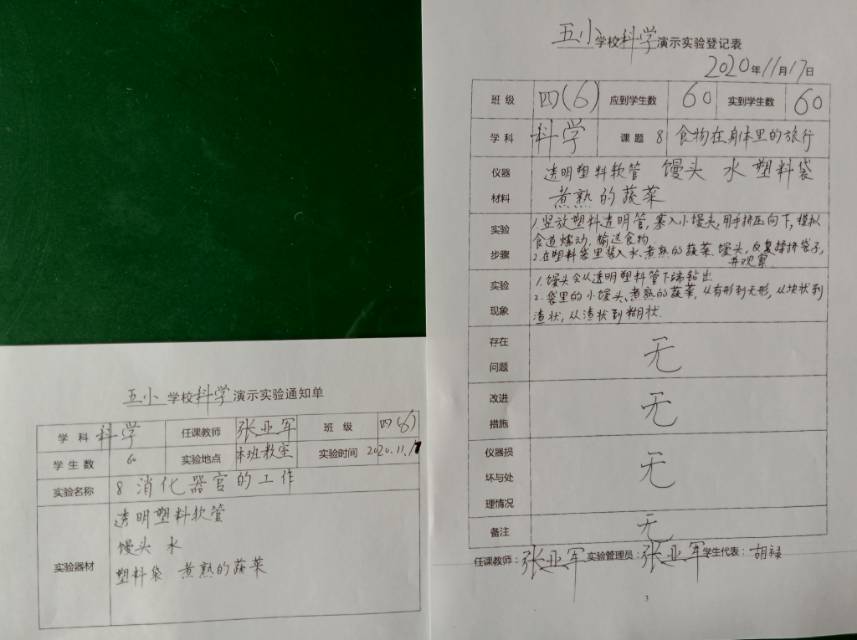 五小学校科学演示实验通知单
学科 科学 任课教师 张亚军 班级 四(6)
学生数 60 实验地点 本班教室 实验时间 2020.11.17
实验名称 8 消化器官的工作
实验器材
透明塑料软管
馒头 水
塑料袋 煮熟的蔬菜
五小学校科学演示实验登记表
2020年11月17日
班级 四(6) 应到学生数 60 实到学生数 60
学科 科学 课题 8 食物在身体里的旅行
仪器材料
透明塑料软管 馒头 水 塑料袋
煮熟的蔬菜
实验步骤
1.竖放塑料透明管,塞入小馒头,用手挤压向下,模拟
食道蠕动,输送食物.
2.在塑料袋里装入水、煮熟的蔬菜、馒头,反复揉挤袋子,
并观察
实验现象
1.馒头会从透明塑料管下端钻出
2.袋里的小馒头、煮熟的蔬菜,从有形到无形,从块状到
渣状,从渣状到糊状.
存在问题 无
改进措施 无
仪器损坏与处理情况 无
备注 无
任课教师:张亚军 实验管理员:张亚军 学生代表:胡禄